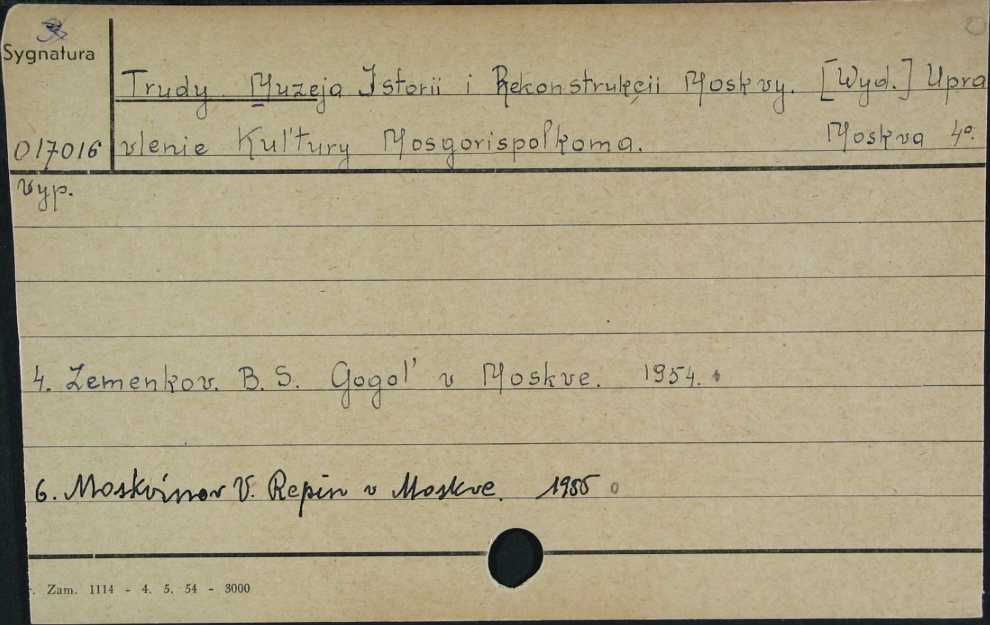 Sygnatura
Trudy Muzeja Istorii i Rekonstrukcii Moskvy. [Wyd.] Upra
017016 vlenie Kul'tury Mosgorispolkoma. Moskva 4°.
Vyp.
4. Zemenkov. B. S. Gogol' v Moskve. 1954.
6. Moskvinov V. Repin v Moskve. 1955
Zam. 1114 - 4. 5. 54 - 3000